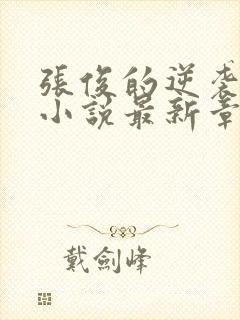 張俊的逆袭
小説最新章
戴劍峰